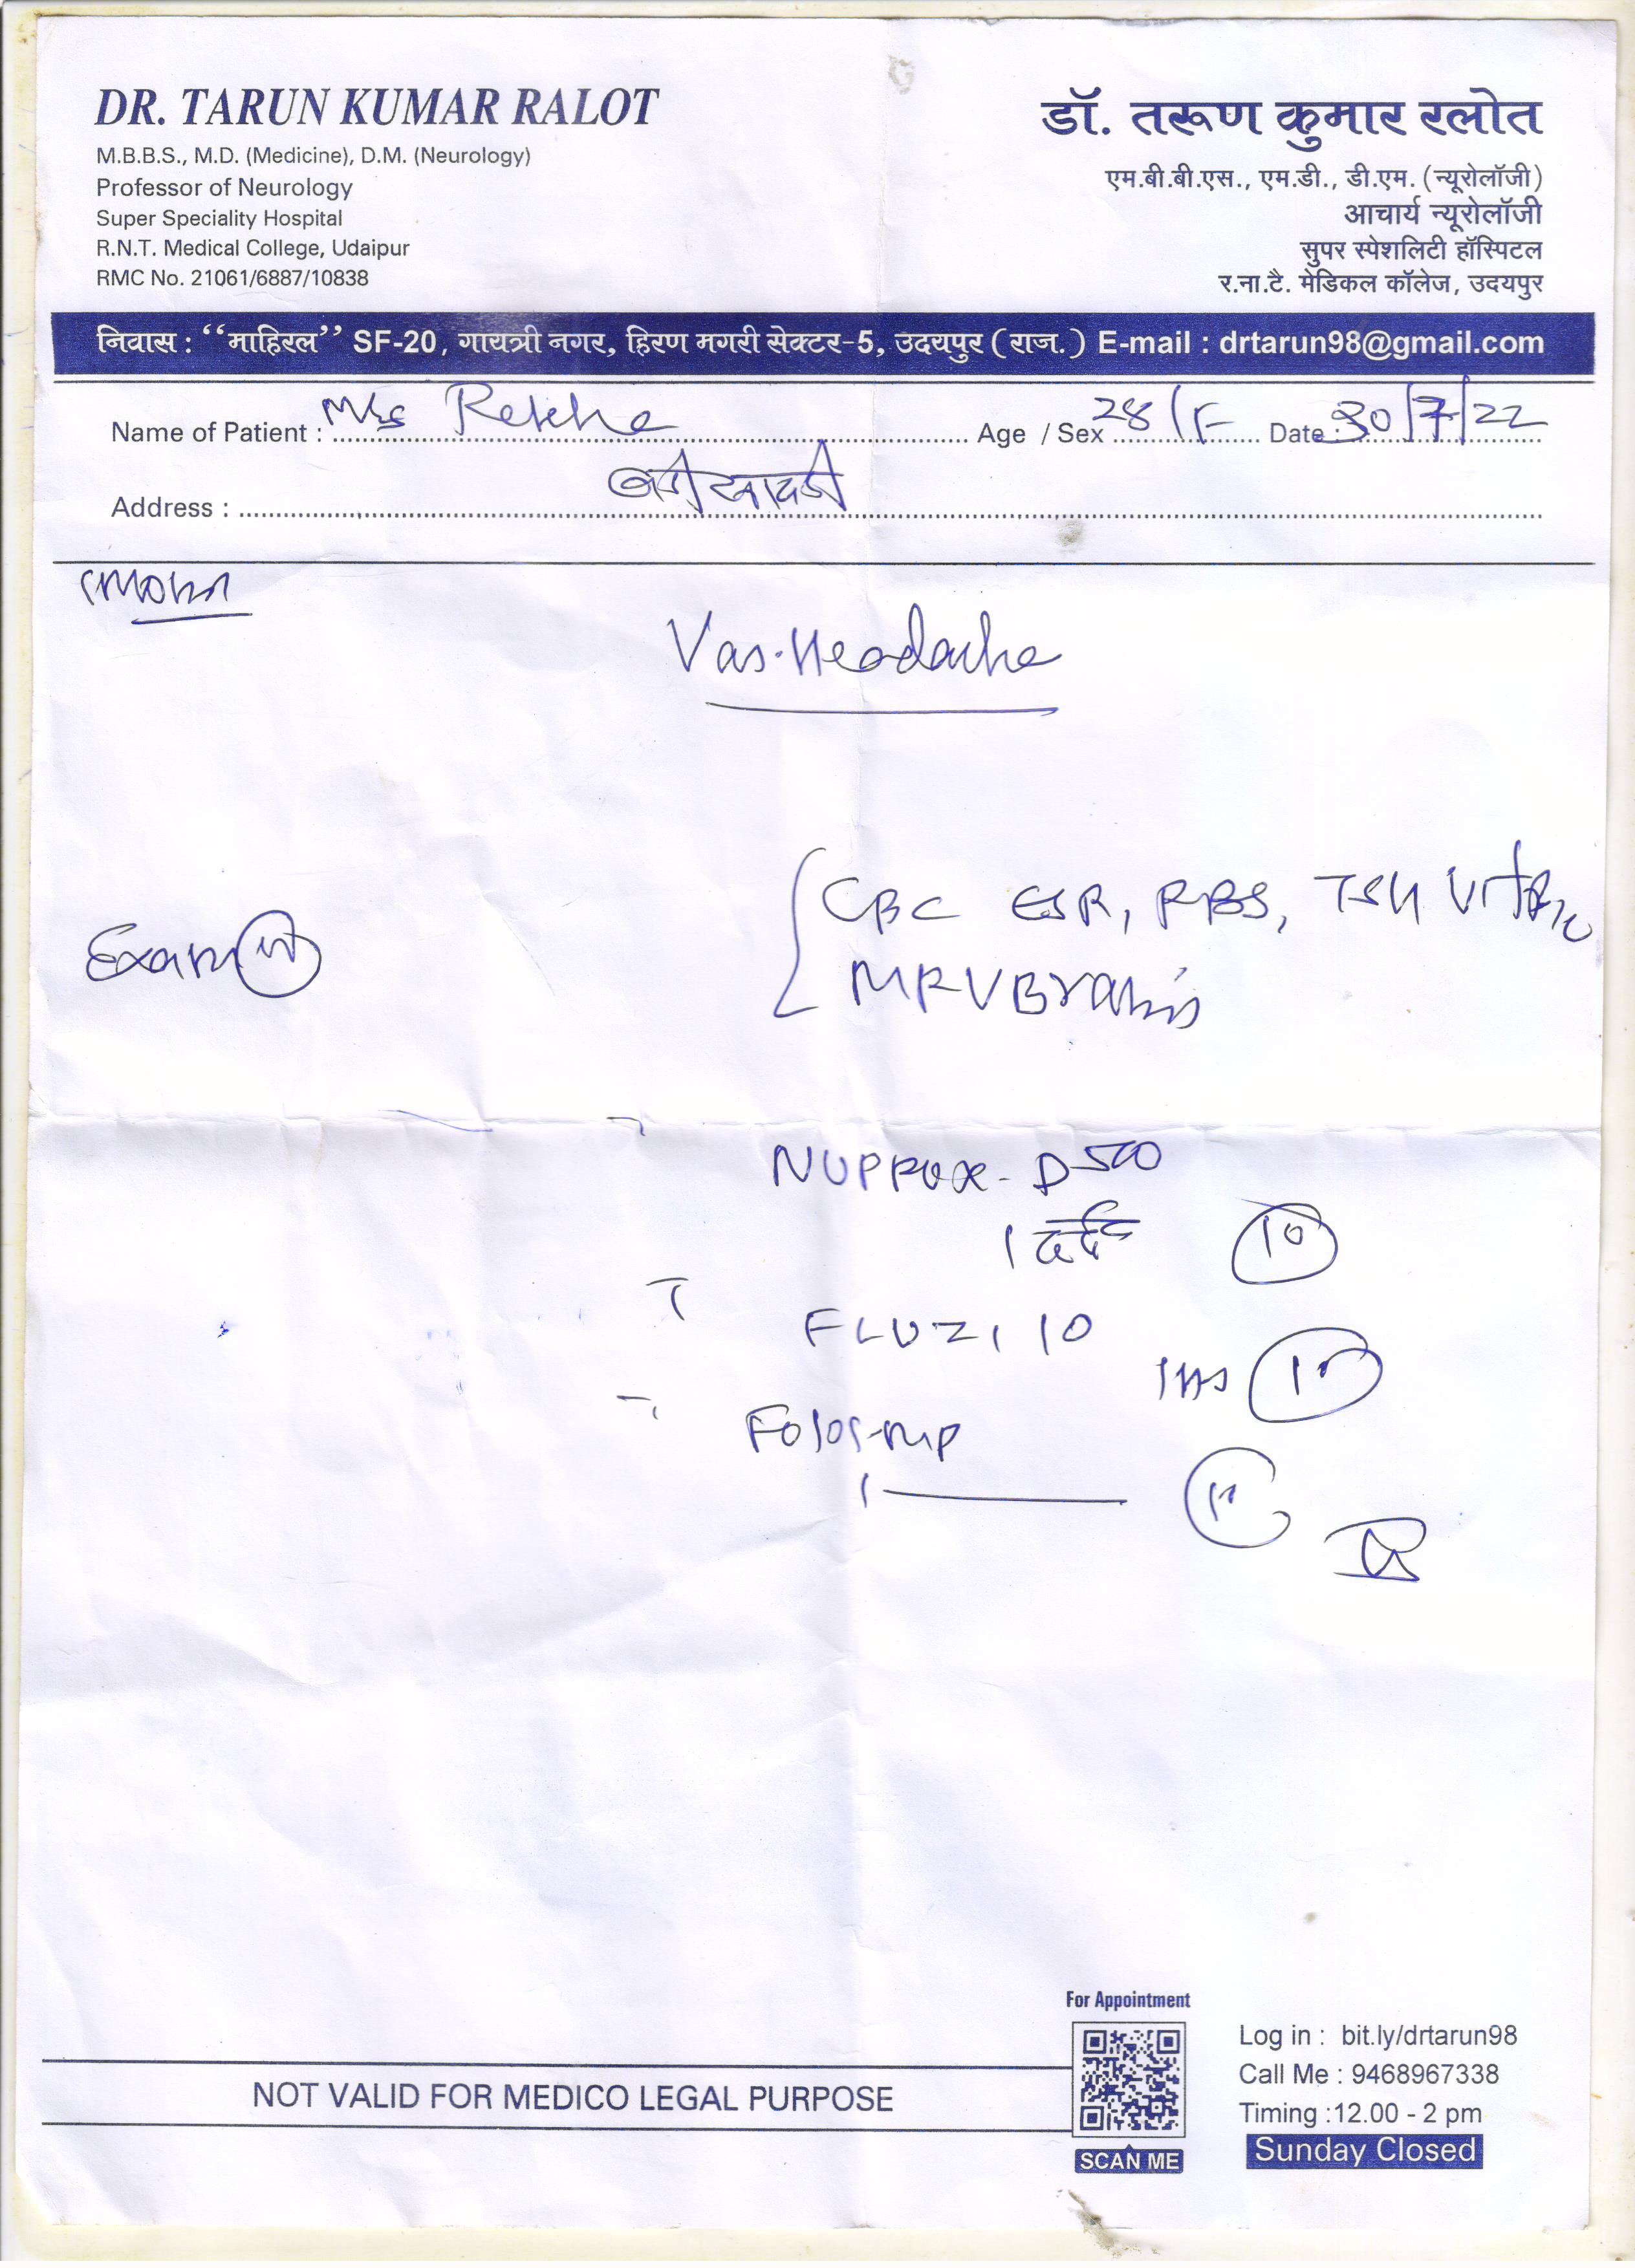 DR. TARUN KUMAR RALOT
M.B.B.S., M.D. (Medicine), D.M. (Neurology)
Professor of Neurology
Super Speciality Hospital
R.N.T. Medical College, Udaipur
RMC No. 21061/6887/10838
डॉ. तरूण कुमार रलोत
एम.बी.बी.एस., एम.डी., डी.एम. (न्यूरोलॉजी)
आचार्य न्यूरोलॉजी
सुपर स्पेशलिटी हॉस्पिटल
र.ना.टै. मेडिकल कॉलेज, उदयपुर
निवास : “माहिरल” SF-20, गायत्री नगर, हिरण मगरी सेक्टर-5, उदयपुर (राज.) E-mail : drtarun98@gmail.com
Name of Patient : Mrs Rekha Age / Sex 28/F Date : 30/7/22
Address :
Vas. Headache
CBC ESR, RBS, TSH
Exam
MRV Brain
D 500
1 दर्द 10
FLUZI 10
1 HS
NOT VALID FOR MEDICO LEGAL PURPOSE
For Appointment
SCAN ME
Log in : bit.ly/drtarun98
Call Me : 9468967338
Timing :12.00 - 2 pm
Sunday Closed